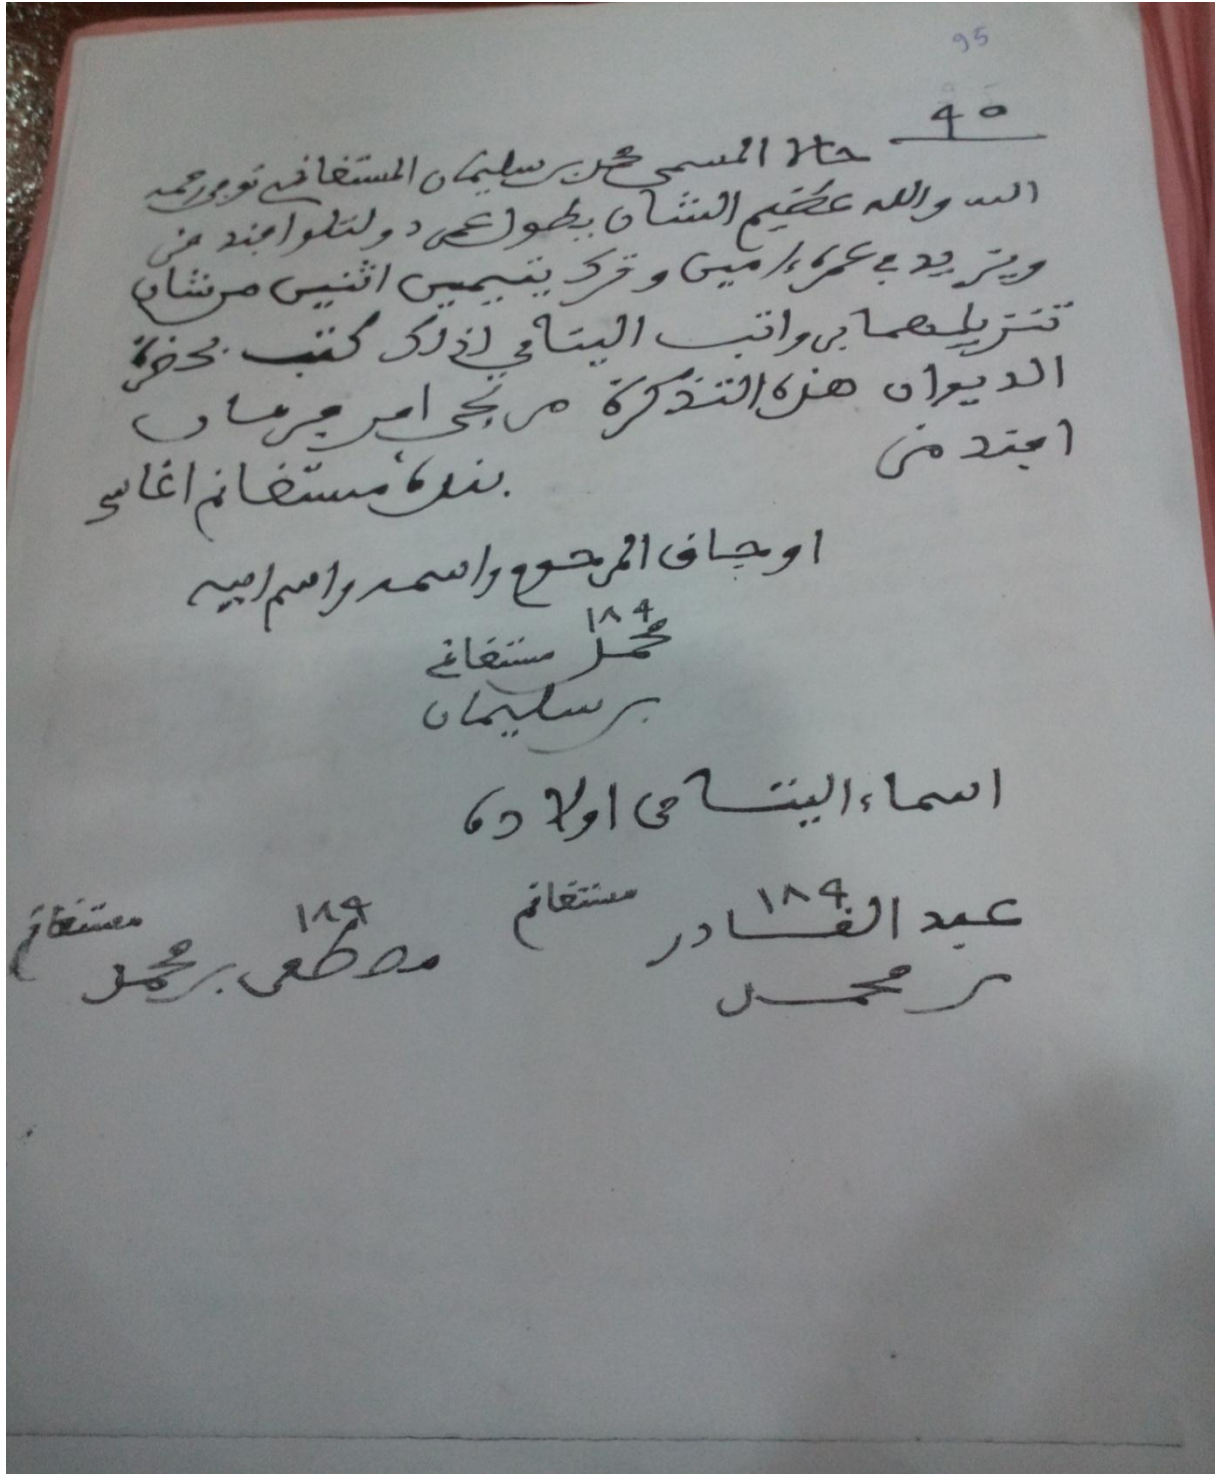 95
٩٥
حالا المسمى محمد بن سليمان المستغانمي توفي رحمه
الله والله عظيم الشان يطول عمر دولتلو افندمن
ويزيد في عمره امين وترك يتيمين اثنين من شان
تنزيلهما في راتب اليتامي لذلك كتب بحضرة
الديوان هذه التذكرة من نجي امر فرمان
افندمن بنده مستغانم اغاسي
اوجاق المرحوم واسمه واسم ابيه
١٨٩
محمد مستغانمي
بن سليمان
اسماء اليتامى اولاده
عبد القادر ١٨٩ مستغانم
بن محمد
مصطفى ١٨٩ بن محمد مستغانم